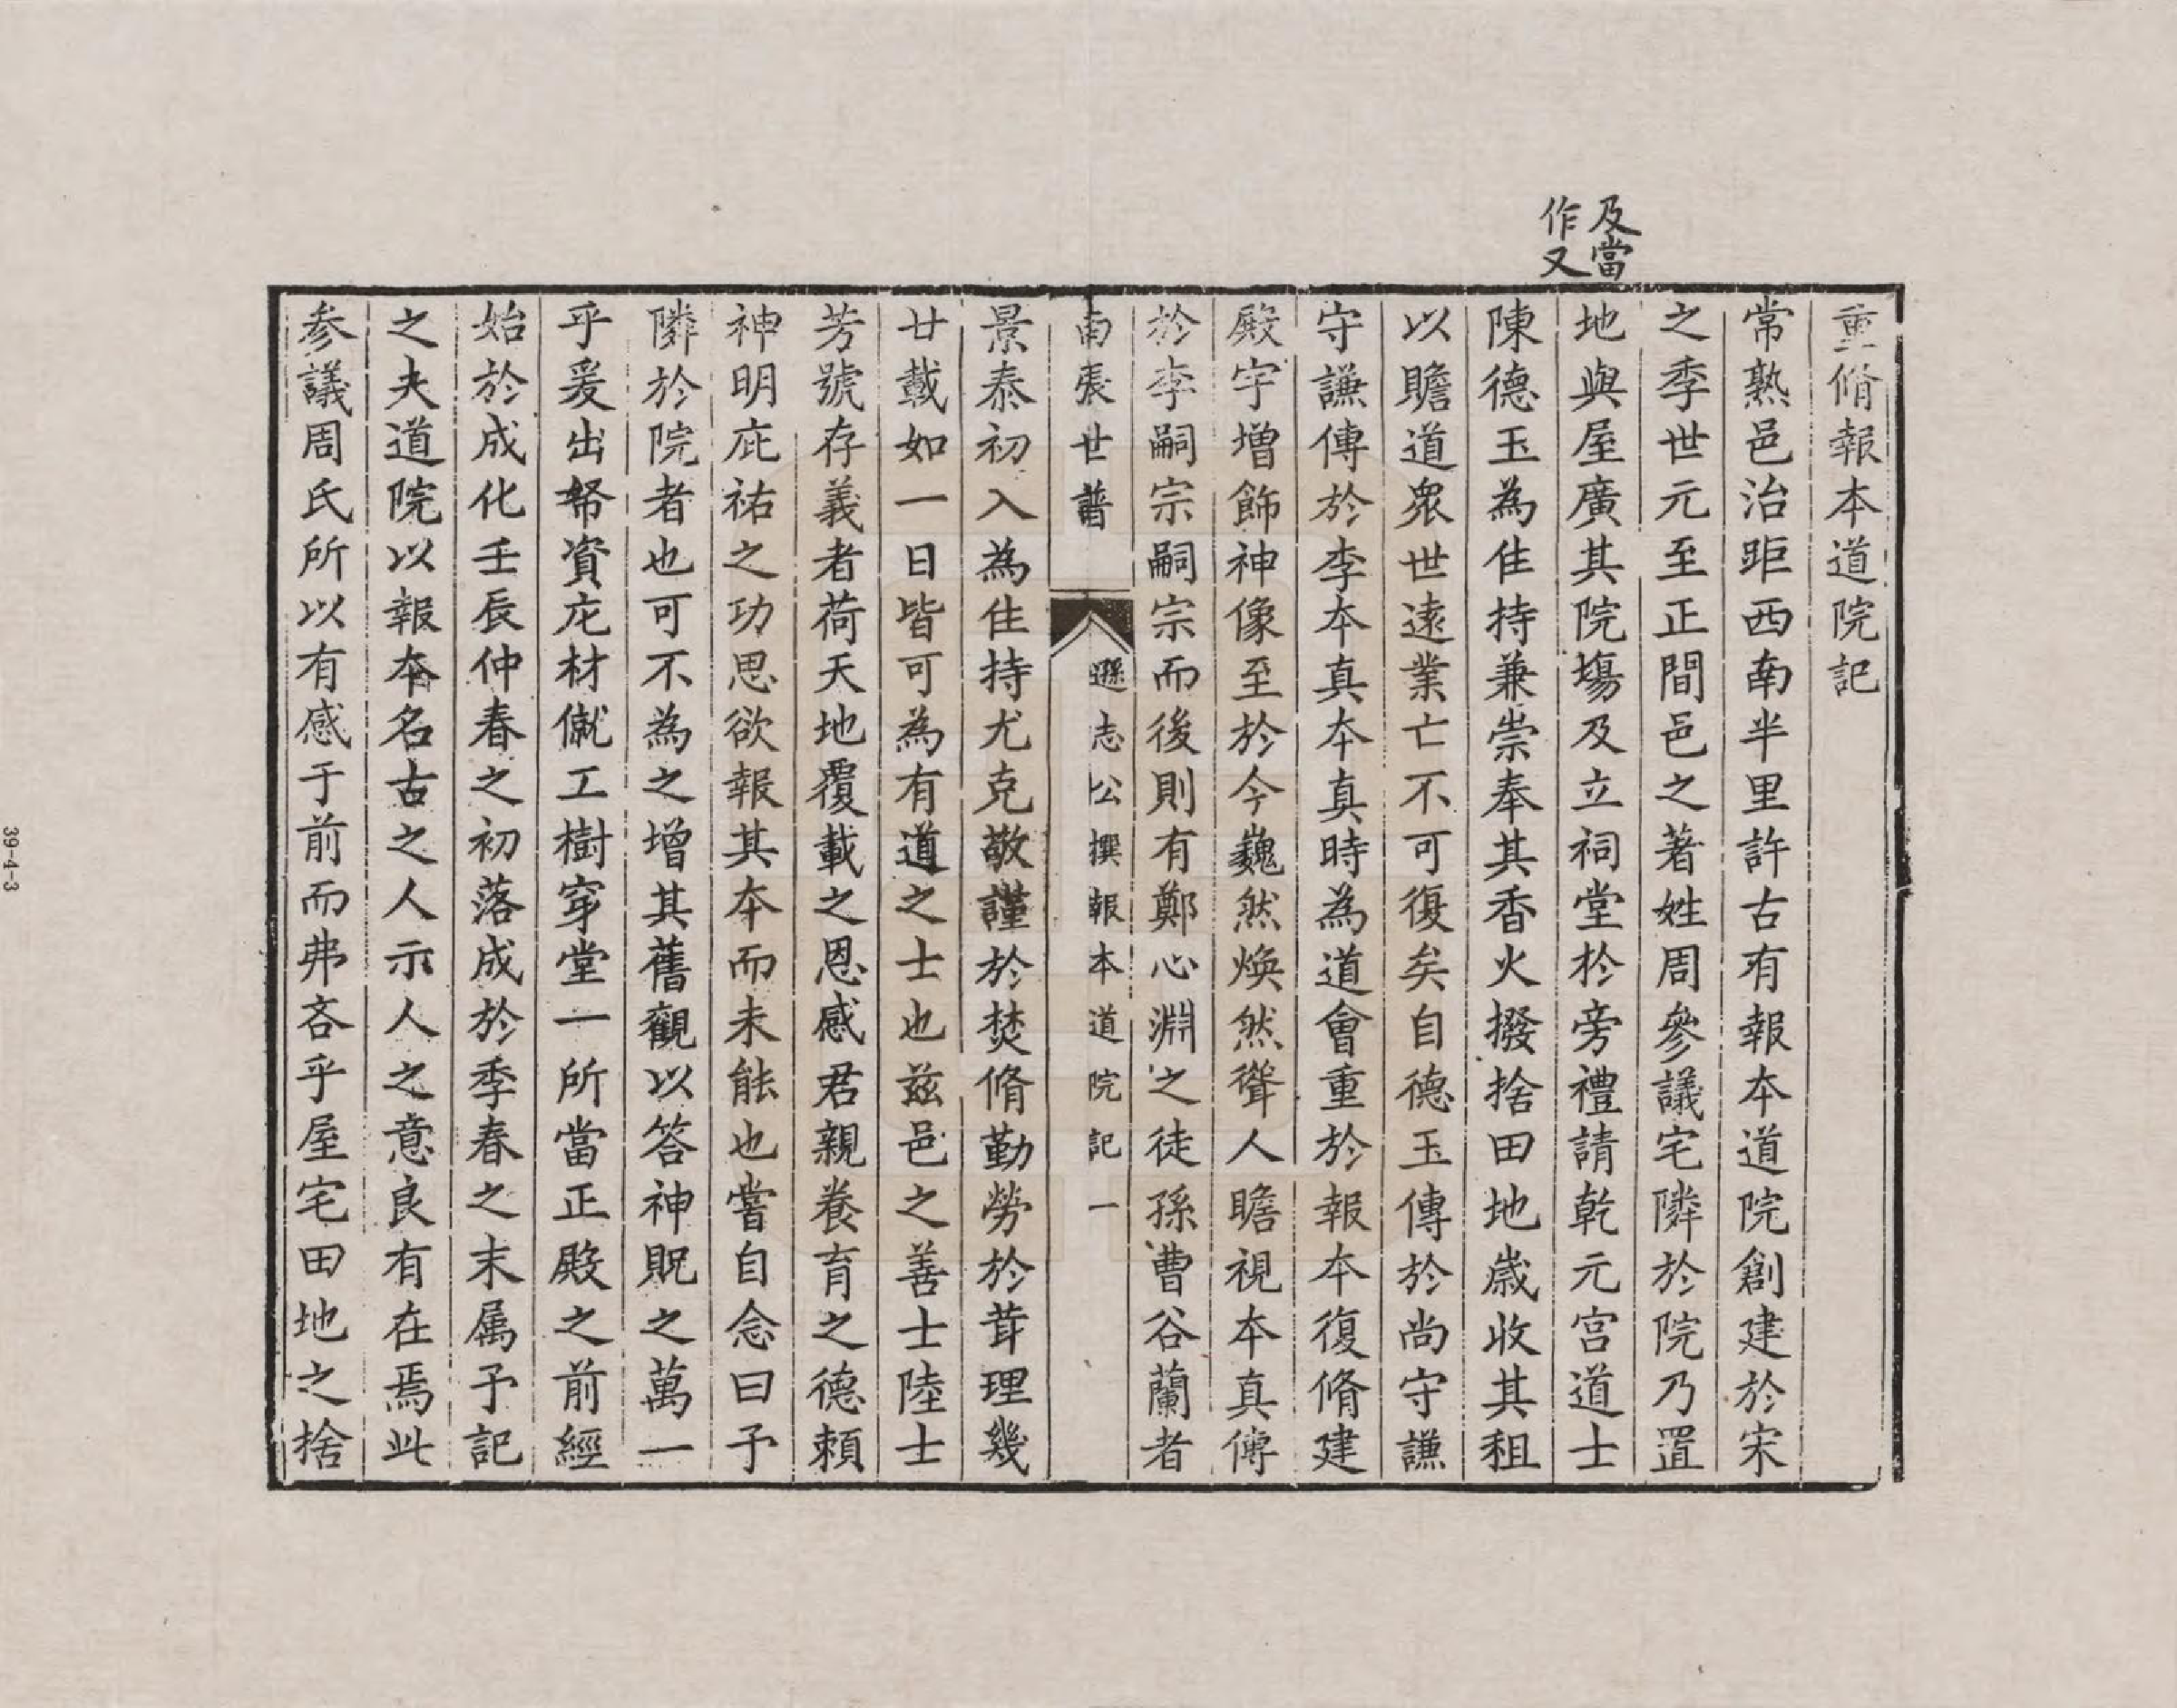 及當
作又
重脩報本道院記
常熟邑治距西南半里許古有報本道院創建於宋
之季世元至正間邑之著姓周參議宅隣於院乃置
地與屋廣其院塲及立祠堂於旁禮請乾元宫道士
陳德玉為住持兼崇奉其香火撥捨田地歳收其租
以贍道衆世遠業亡不可復矣自德玉傳於尚守謙
守謙傳於李本真本真時為道會重於報本復脩建
殿宇増飾神像至於今巍然煥然聳人瞻視本真傳
於李嗣宗嗣宗而後則有鄭心淵之徒孫曹谷蘭者
南張世譜
遜志公撰報本道院記一
景泰初入為住持尤克敬謹於焚脩勤勞於葺理幾
廿載如一日皆可為有道之士也兹邑之善士陸士
芳號存義者荷天地覆載之恩感君親養育之德頼
神明庇祐之功思欲報其本而未能也嘗自念曰予
隣於院者也可不為之增其舊觀以答神貺之萬一
乎爰出帑資庀材僦工樹穿堂一所當正殿之前經
始於成化壬辰仲春之初落成於季春之末属予記
之夫道院以報本名古之人示人之意良有在焉此
参議周氏所以有感于前而弗吝乎屋宅田地之捨
39-4-3